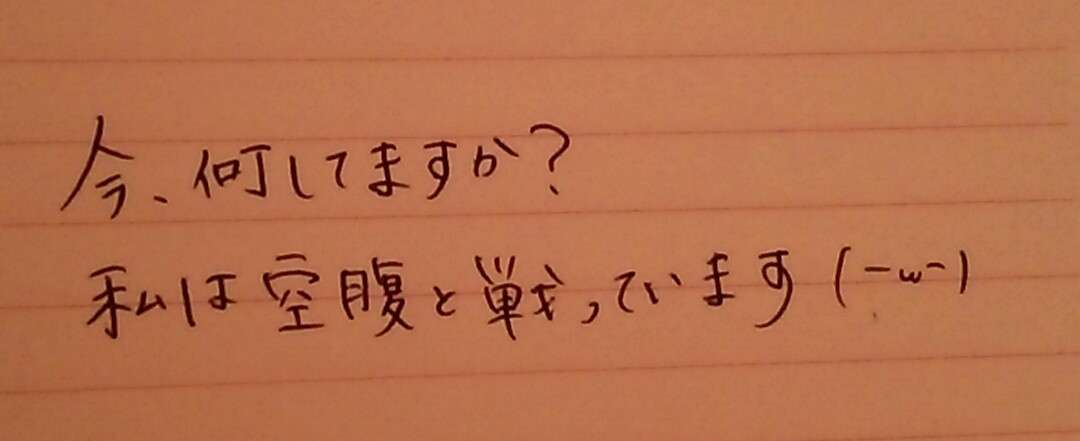 今、何してますか?
私は空腹と戦っています(-w-)